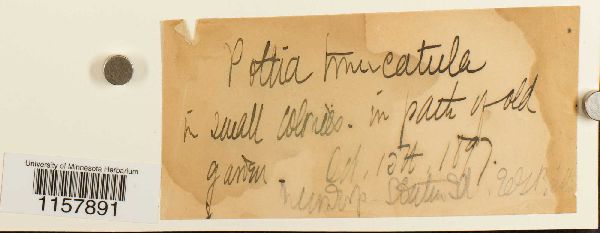 Pottia truncatula
in small colonies. in path of old
garden. Oct. 15th, 1897.
Staten Isl
University of Minnesota Herbarium
1157891